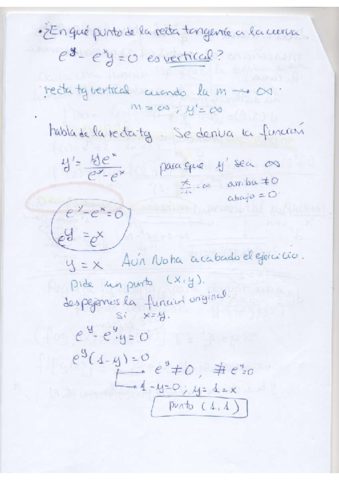 • ¿En qué punto de la recta tangente a la curva
e^y - e^x y = 0 es vertical?
recta tg vertical cuando la m → ∞
m = ∞, y' = ∞
habla de la recta tg Se deriva la función
y' = ye^x / (e^y - e^x) para que y' sea ∞
arriba ≠ 0
abajo = 0
e^y - e^x = 0
e^y = e^x
y = x Aún no ha acabado el ejercicio.
Pide un punto (x, y).
despejamos la función original
si x = y.
e^y - e^y · y = 0
e^y (1 - y) = 0
→ e^y ≠ 0, ∄ e^y = 0
→ 1 - y = 0; y = 1 = x
punto (1, 1)